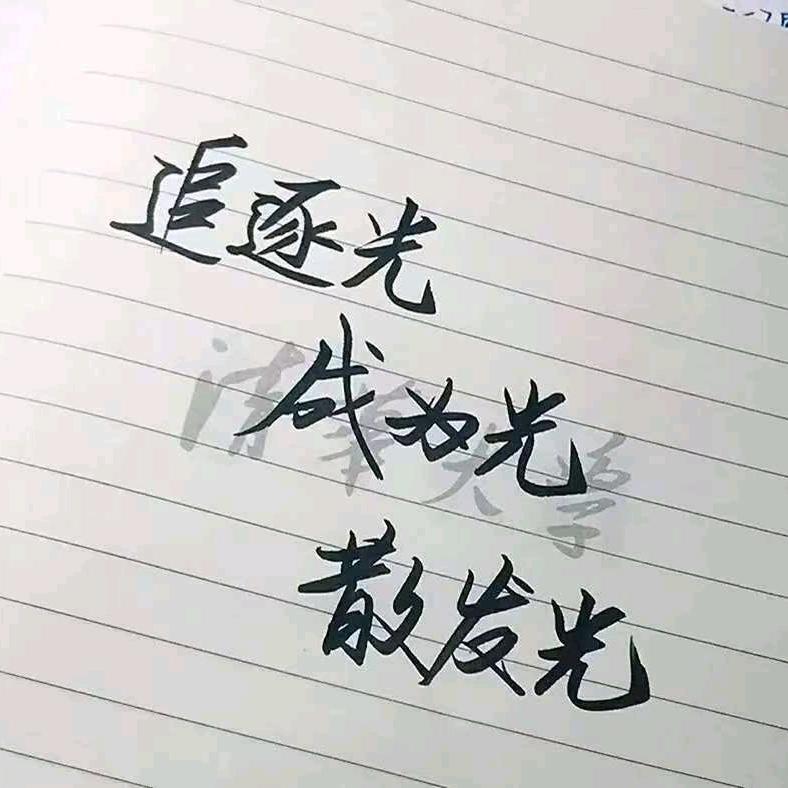 追逐光
成为光
清华大学
散发光